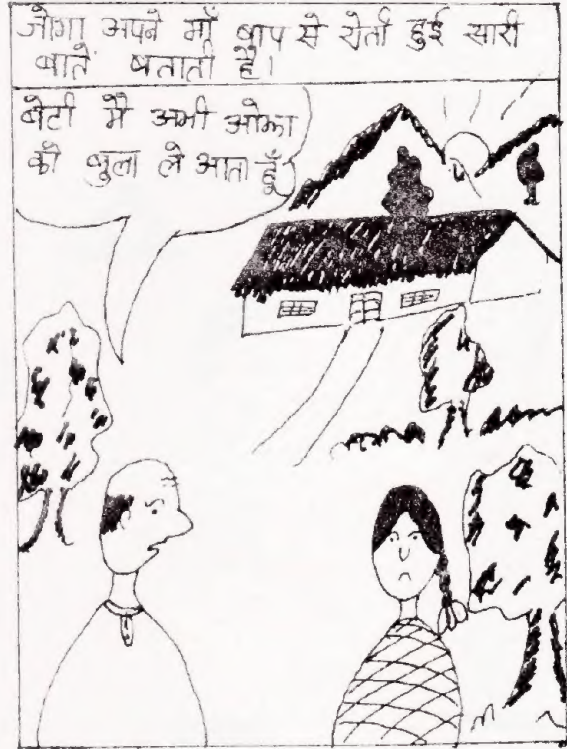 जोभा अपने माँ बाप से रोती हुई सारी
बातें बताती है।
बेटी मै अभी ओझा
को बुला ले आता हूँ